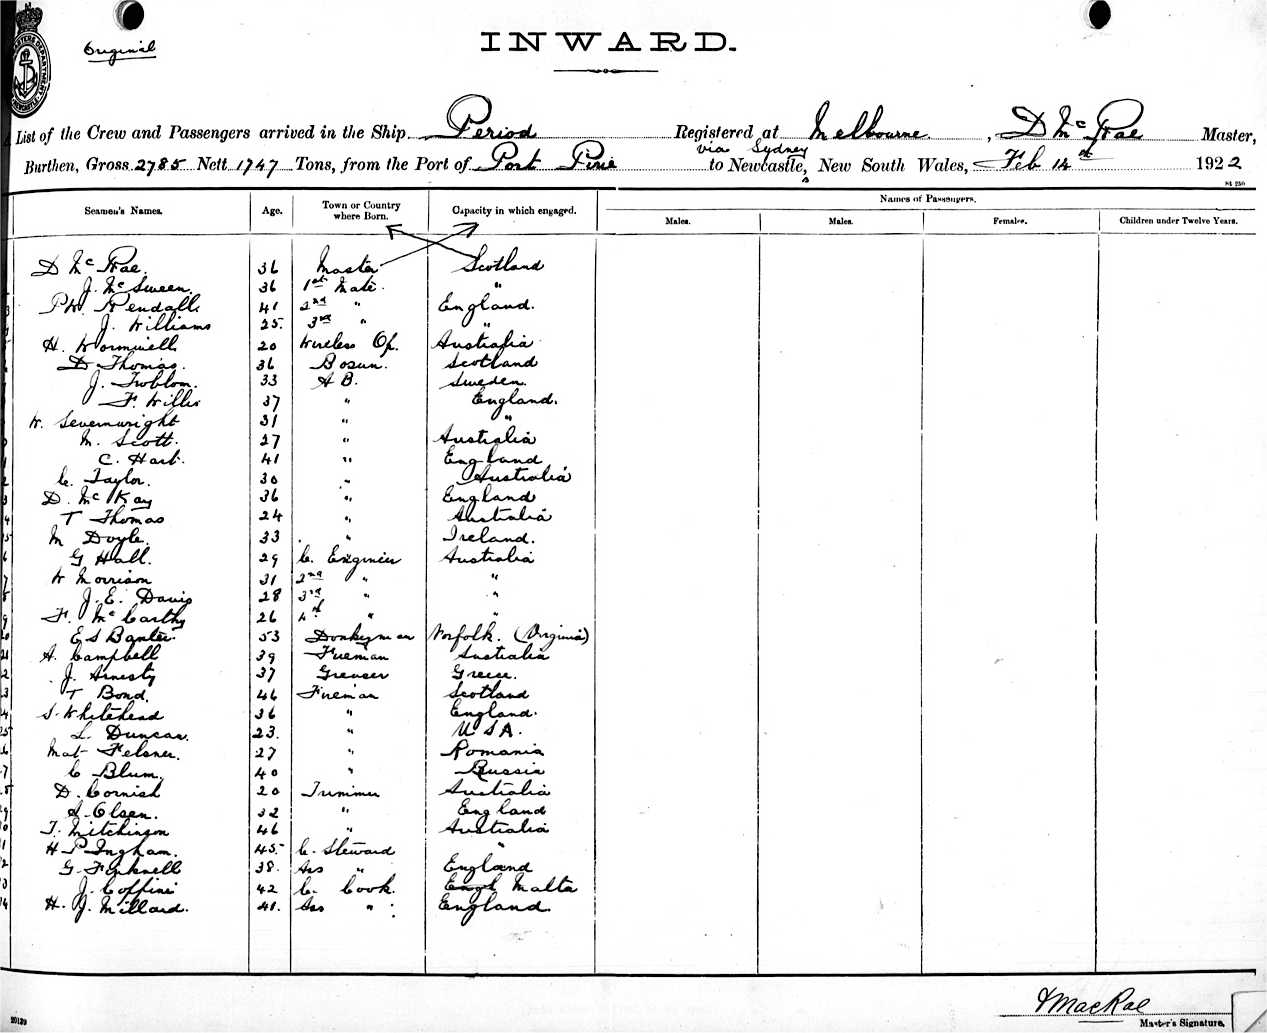 Original
INWARD.
List of the Crew and Passengers arrived in the Ship Period Registered at Melbourne, D McRae Master,
via Sydney
Burthen, Gross 2785 Nett 1747 Tons, from the Port of Port Pirie to Newcastle, New South Wales, Feb 14th 1922
St 250
Seamen's Names. Age. Town or Country where Born. Capacity in which engaged. Names of Passengers.
Males. Males. Females. Children under Twelve Years.
D McRae. 36 Master Scotland
J. McSween. 36 1st Mate. "
P.W. Rendall. 41 2nd " England.
J. Williams 25. 3rd " "
H. Wormwell 20 Wireless Op. Australia
D Thomas. 36 Bosun. Scotland
J. 33 A B. Sweden.
F. Willis 37 " England.
W. Severnwright 31 " "
M. Scott. 27 " Australia
C. Hart. 41 " England
C. Taylor. 30 " Australia
D. McKay 36 " England
T Thomas 24 " Australia
M Doyle. 33 " Ireland.
G Hall. 29 C. Engineer Australia
W Morrison 31 2nd " "
J. E. Davis 28 3rd " "
F. McCarthy 26 4th " "
E S 53 Donkeyman Norfolk. (Virginia)
A. Campbell 39 Fireman Australia
J. Amesty 37 Greaser Greece.
T Bond. 46 Fireman Scotland
S. Whitehead 36 " England.
L. Duncan. 23. " U S A.
Mat Felsner. 27 " Romania
C Blum. 40 " Russia
D. Cornish 20 Trimmer Australia
Olsen. 32 " England
T. Mitchinson 46 " Australia
H P Ingham. 45. C. Steward "
G. 38. Ass " England
J. Coffini 42 C. Cook. Engl Malta
H. J. Millard. 41. Ass " England.
MacRae
Master's Signature.
20139